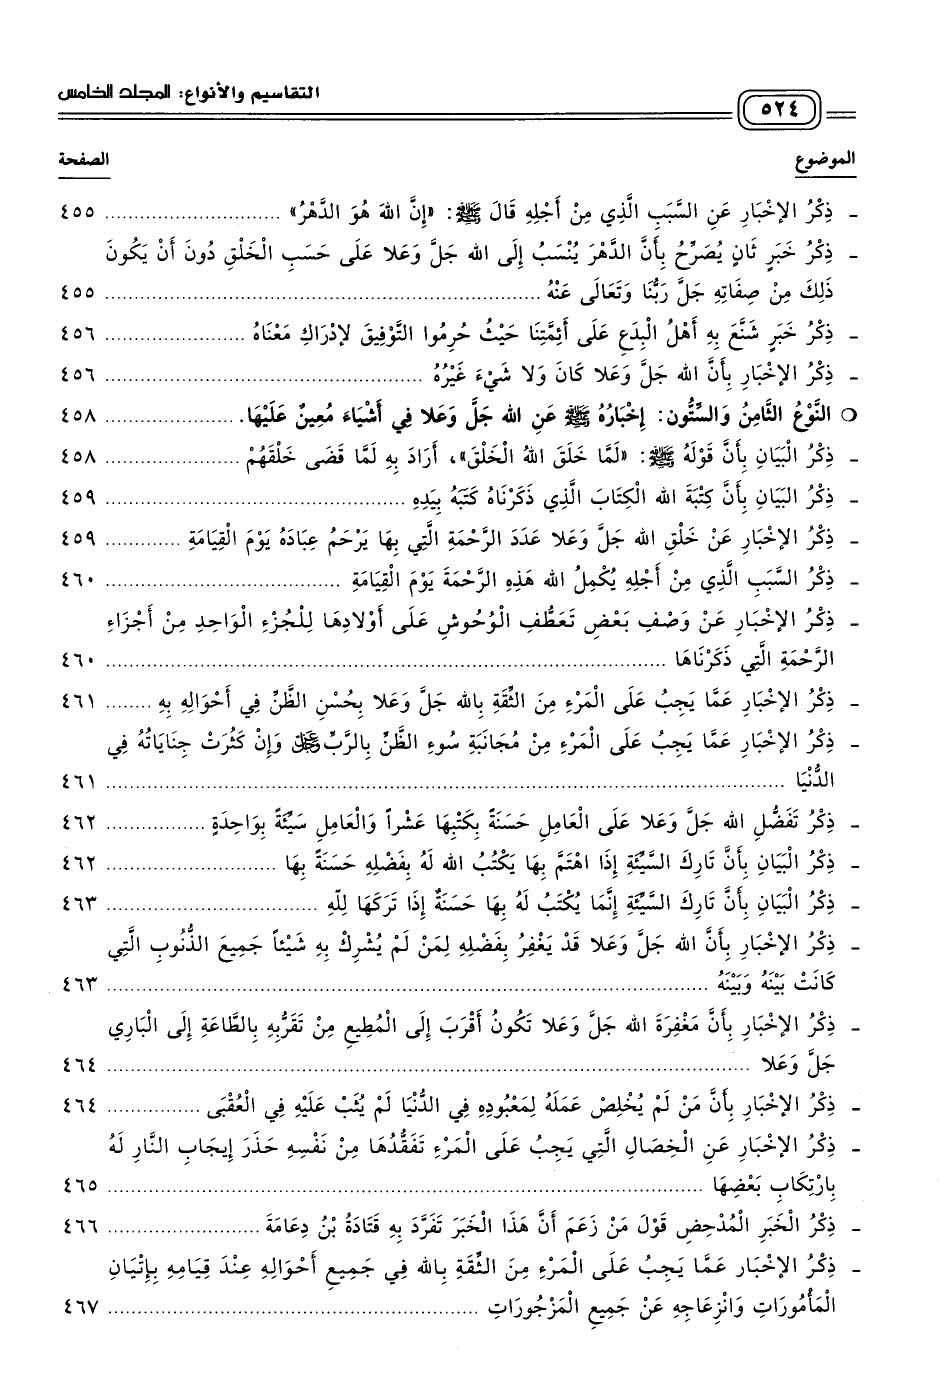 ٥٢٤
التقاسيم والأنواع: المجلد الخامس
الموضوع الصفحة
- ذِكْرُ الإخْبَارِ عَنِ السَّبَبِ الَّذِي مِنْ أَجْلِهِ قَالَ ﷺ: «إِنَّ اللهَ هُوَ الدَّهْرُ» ٤٥٥
- ذِكْرُ خَبَرٍ ثَانٍ يُصَرِّحُ بِأَنَّ الدَّهْرَ يُنْسَبُ إِلَى اللهِ جَلَّ وَعَلا عَلَى حَسَبِ الْخَلْقِ دُونَ أَنْ يَكُونَ
ذَلِكَ مِنْ صِفَاتِهِ جَلَّ رَبُّنَا وَتَعَالَى عَنْهُ ٤٥٥
- ذِكْرُ خَبَرٍ شَنَّعَ بِهِ أَهْلُ الْبِدَعِ عَلَى أَئِمَّتِنَا حَيْثُ حُرِمُوا التَّوْفِيقَ لإدْرَاكِ مَعْنَاهُ ٤٥٦
- ذِكْرُ الإخْبَارِ بِأَنَّ اللهَ جَلَّ وَعَلا كَانَ وَلا شَيْءَ غَيْرُهُ ٤٥٦
○ النَّوْعُ الثَّامِنُ وَالسِّتُّون: إِخْبَارُهُ ﷺ عَنِ اللهِ جَلَّ وَعَلا فِي أَشْيَاءَ مُعِينٌ عَلَيْهَا. ٤٥٨
- ذِكْرُ الْبَيَانِ بِأَنَّ قَوْلَهُ ﷺ: «لَمَّا خَلَقَ اللهُ الْخَلْقَ»، أَرَادَ بِهِ لَمَّا قَضَى خَلْقَهُمْ ٤٥٨
- ذِكْرُ البَيَانِ بِأَنَّ كِتْبَةَ اللهِ الْكِتَابَ الَّذِي ذَكَرْنَاهُ كَتَبَهُ بِيَدِهِ ٤٥٩
- ذِكْرُ الإخْبَارِ عَنْ خَلْقِ اللهِ جَلَّ وَعَلا عَدَدَ الرَّحْمَةِ الَّتِي بِهَا يَرْحَمُ عِبَادَهُ يَوْمَ الْقِيَامَةِ ٤٥٩
- ذِكْرُ السَّبَبِ الَّذِي مِنْ أَجْلِهِ يُكْمِلُ اللهُ هَذِهِ الرَّحْمَةَ يَوْمَ الْقِيَامَةِ ٤٦٠
- ذِكْرُ الإخْبَارِ عَنْ وَصْفِ بَعْضِ تَعَطُّفِ الْوُحُوشِ عَلَى أَوْلادِهَا لِلْجُزْءِ الْوَاحِدِ مِنْ أَجْزَاءِ
الرَّحْمَةِ الَّتِي ذَكَرْنَاهَا ٤٦٠
- ذِكْرُ الإخْبَارِ عَمَّا يَجِبُ عَلَى الْمَرْءِ مِنَ الثِّقَةِ بِاللهِ جَلَّ وَعَلا بِحُسْنِ الظَّنِّ فِي أَحْوَالِهِ بِهِ ٤٦١
- ذِكْرُ الإخْبَارِ عَمَّا يَجِبُ عَلَى الْمَرْءِ مِنْ مُجَانَبَةِ سُوءِ الظَّنِّ بِالرَّبِّ ﷻ وَإِنْ كَثُرَتْ جِنَايَاتُهُ فِي
الدُّنْيَا ٤٦١
- ذِكْرُ تَفَضُّلِ اللهِ جَلَّ وَعَلا عَلَى الْعَامِلِ حَسَنَةً بِكَتْبِهَا عَشْراً وَالْعَامِلِ سَيِّئَةً بِوَاحِدَةٍ ٤٦٢
- ذِكْرُ الْبَيَانِ بِأَنَّ تَارِكَ السَّيِّئَةِ إِذَا اهْتَمَّ بِهَا يَكْتُبُ اللهُ لَهُ بِفَضْلِهِ حَسَنَةً بِهَا ٤٦٢
- ذِكْرُ الْبَيَانِ بِأَنَّ تَارِكَ السَّيِّئَةِ إِنَّمَا يُكْتَبُ لَهُ بِهَا حَسَنَةٌ إِذَا تَرَكَهَا لِلَّهِ ٤٦٣
- ذِكْرُ الإخْبَارِ بِأَنَّ اللهَ جَلَّ وَعَلا قَدْ يَغْفِرُ بِفَضْلِهِ لِمَنْ لَمْ يُشْرِكْ بِهِ شَيْئاً جَمِيعَ الذُّنُوبِ الَّتِي
كَانَتْ بَيْنَهُ وَبَيْنَهُ ٤٦٣
- ذِكْرُ الإخْبَارِ بِأَنَّ مَغْفِرَةَ اللهِ جَلَّ وَعَلا تَكُونُ أَقْرَبَ إِلَى الْمُطِيعِ مِنْ تَقَرُّبِهِ بِالطَّاعَةِ إِلَى الْبَارِي
جَلَّ وَعَلا ٤٦٤
- ذِكْرُ الإخْبَارِ بِأَنَّ مَنْ لَمْ يُخْلِصْ عَمَلَهُ لِمَعْبُودِهِ فِي الدُّنْيَا لَمْ يُثَبْ عَلَيْهِ فِي الْعُقْبَى ٤٦٤
- ذِكْرُ الإخْبَارِ عَنِ الْخِصَالِ الَّتِي يَجِبُ عَلَى الْمَرْءِ تَفَقُّدُهَا مِنْ نَفْسِهِ حَذَرَ إِيجَابِ النَّارِ لَهُ
بِارْتِكَابِ بَعْضِهَا ٤٦٥
- ذِكْرُ الْخَبَرِ الْمُدْحِضِ قَوْلَ مَنْ زَعَمَ أَنَّ هَذَا الْخَبَرَ تَفَرَّدَ بِهِ قَتَادَةُ بْنُ دِعَامَةَ ٤٦٦
- ذِكْرُ الإخْبَارِ عَمَّا يَجِبُ عَلَى الْمَرْءِ مِنَ الثِّقَةِ بِاللهِ فِي جَمِيعِ أَحْوَالِهِ عِنْدَ قِيَامِهِ بِإِتْيَانِ
الْمَأْمُورَاتِ وَانْزِعَاجِهِ عَنْ جَمِيعِ الْمَزْجُورَاتِ ٤٦٧